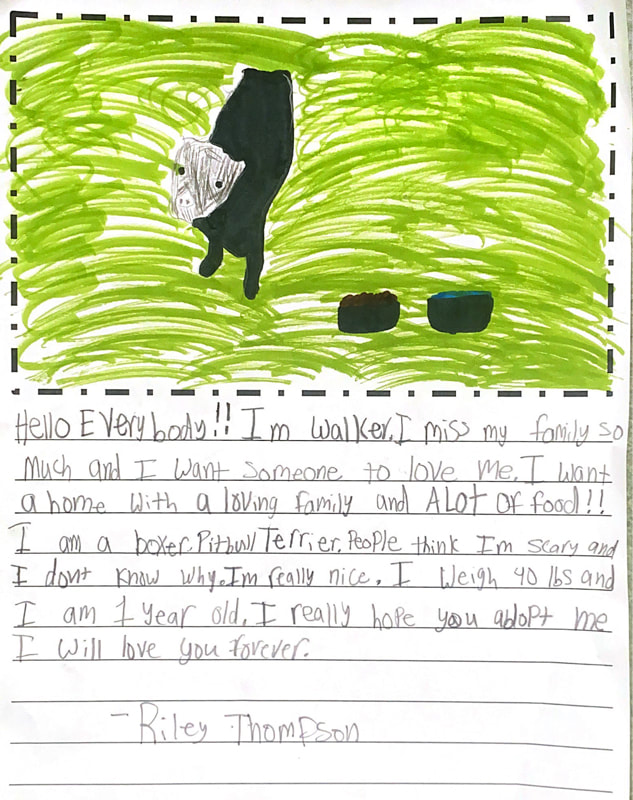 Hello EVerybody!! Im walker.I miss my family so
much and I want someone to love me.I want
a home with a loving family and ALOt of food!!
I am a boxer.Pitbull Terrier.People think Im scary and
I dont know why.Im really nice. I weigh 40 lbs and
I am 1 year old.I really hope you adopt me
I will love you forever.
- Riley Thompson